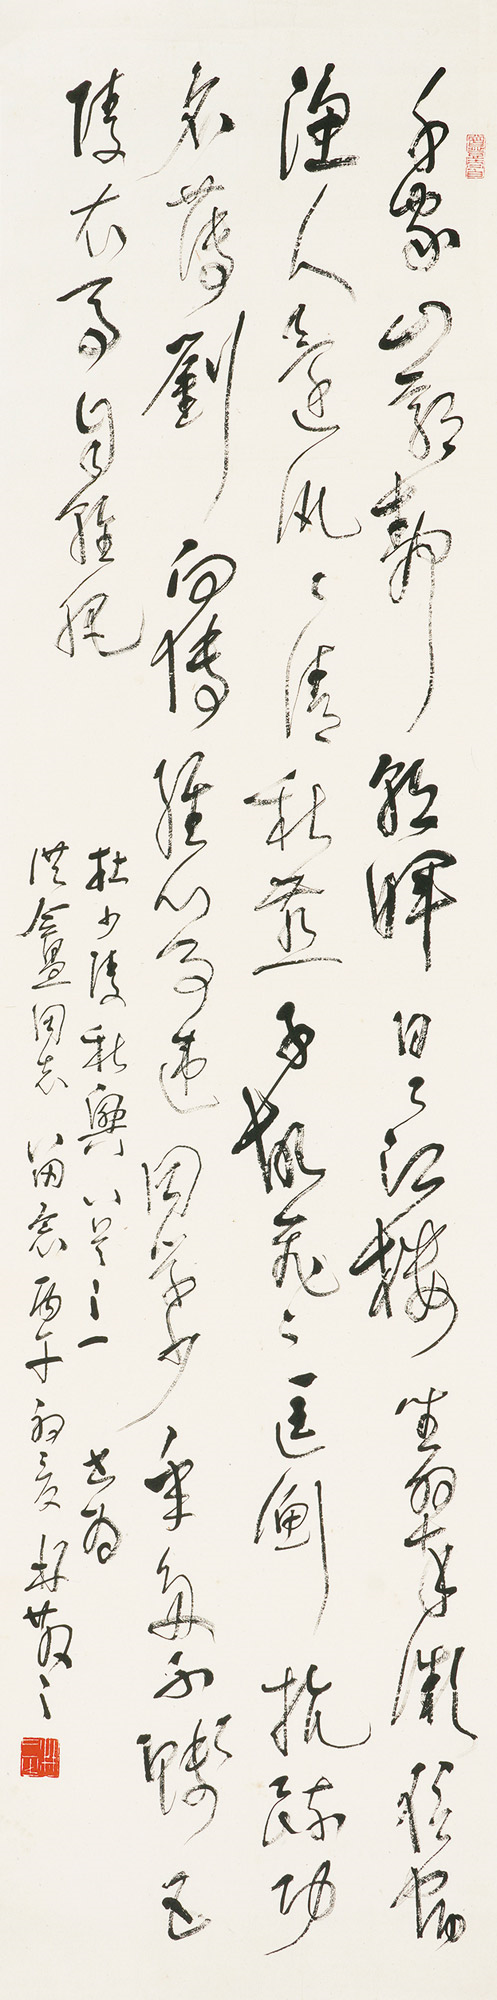 千家山郭靜朝暉日々江樓坐翠微信宿
漁人還汎々清秋燕子故飛々匡衡抗疏功
名薄劉向傳經心事違同學少年多不賤五
陵衣馬自輕肥
杜少陵秋興八首之一 書為
洪盦同志留念 丙午初夏 林散之